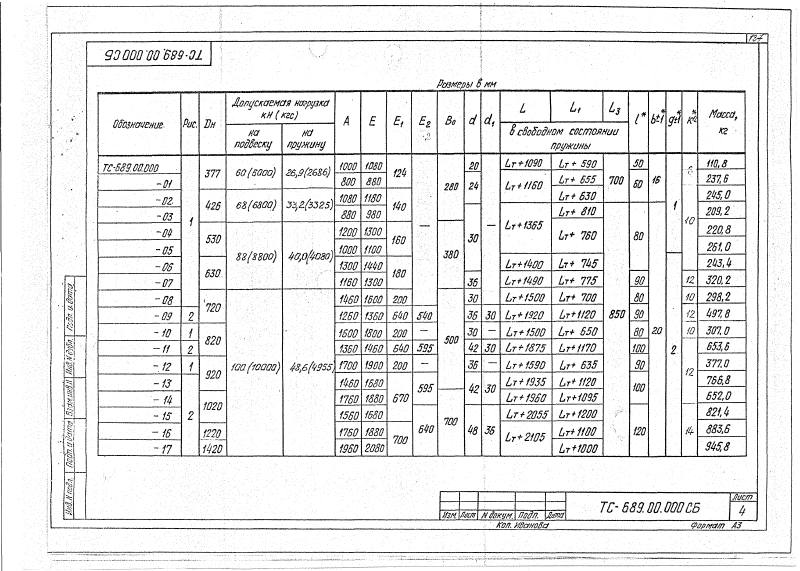 ТС-689.00.000СБ
Размеры в мм
Обозначение Рис. Dн Допускаемая нагрузка кН (кгс) A E E₁ E₂ B₀ d d₁ L L₁ L₃ l* b±1* g±1* к* Масса, кг
на подвеску на пружину в свободном состоянии пружины
ТС-689.00.000 1 377 60(6000) 26,9(2686) 1000 1080 124 — 280 20 — Lт+1090 Lт+590 700 50 16 1 110,8
-01 800 880 24 Lт+1160 Lт+655 60 237,6
-02 426 68(6800) 33,2(3325) 1080 1180 140 Lт+630 245,0
-03 880 980 30 Lт+1365 Lт+810 850 80 20 10 209,2
-04 530 88(8800) 40,0(4080) 1200 1300 160 380 Lт+760 220,8
-05 1000 1100 261,0
-06 630 1300 1440 180 Lт+1400 Lт+745 2 243,4
-07 1160 1300 36 Lт+1490 Lт+775 90 12 320,2
-08 720 100(10000) 48,6(4955) 1460 1600 200 500 30 Lт+1500 Lт+700 80 10 298,2
-09 2 1260 1360 640 540 36 30 Lт+1920 Lт+1120 90 12 497,8
-10 1 820 1600 1800 200 — 30 — Lт+1500 Lт+650 80 10 307,0
-11 2 1360 1460 640 595 42 30 Lт+1875 Lт+1170 100 12 653,6
-12 1 920 1700 1900 200 — 36 — Lт+1590 Lт+635 90 377,0
-13 2 1460 1680 670 595 42 30 Lт+1935 Lт+1120 100 766,8
-14 1020 1760 1880 700 Lт+1960 Lт+1095 652,0
-15 1560 1680 640 48 36 Lт+2055 Lт+1200 120 14 821,4
-16 1220 1760 1880 700 Lт+2105 Lт+1100 883,6
-17 1420 1960 2080 Lт+1000 945,8
Инв. № подл. Подп. и дата Взам. инв. № Инв. № дубл. Подп. и дата
Изм. Лист № докум. Подп. Дата
ТС-689.00.000 СБ
Лист
4
Коп. Иванова
Формат А3